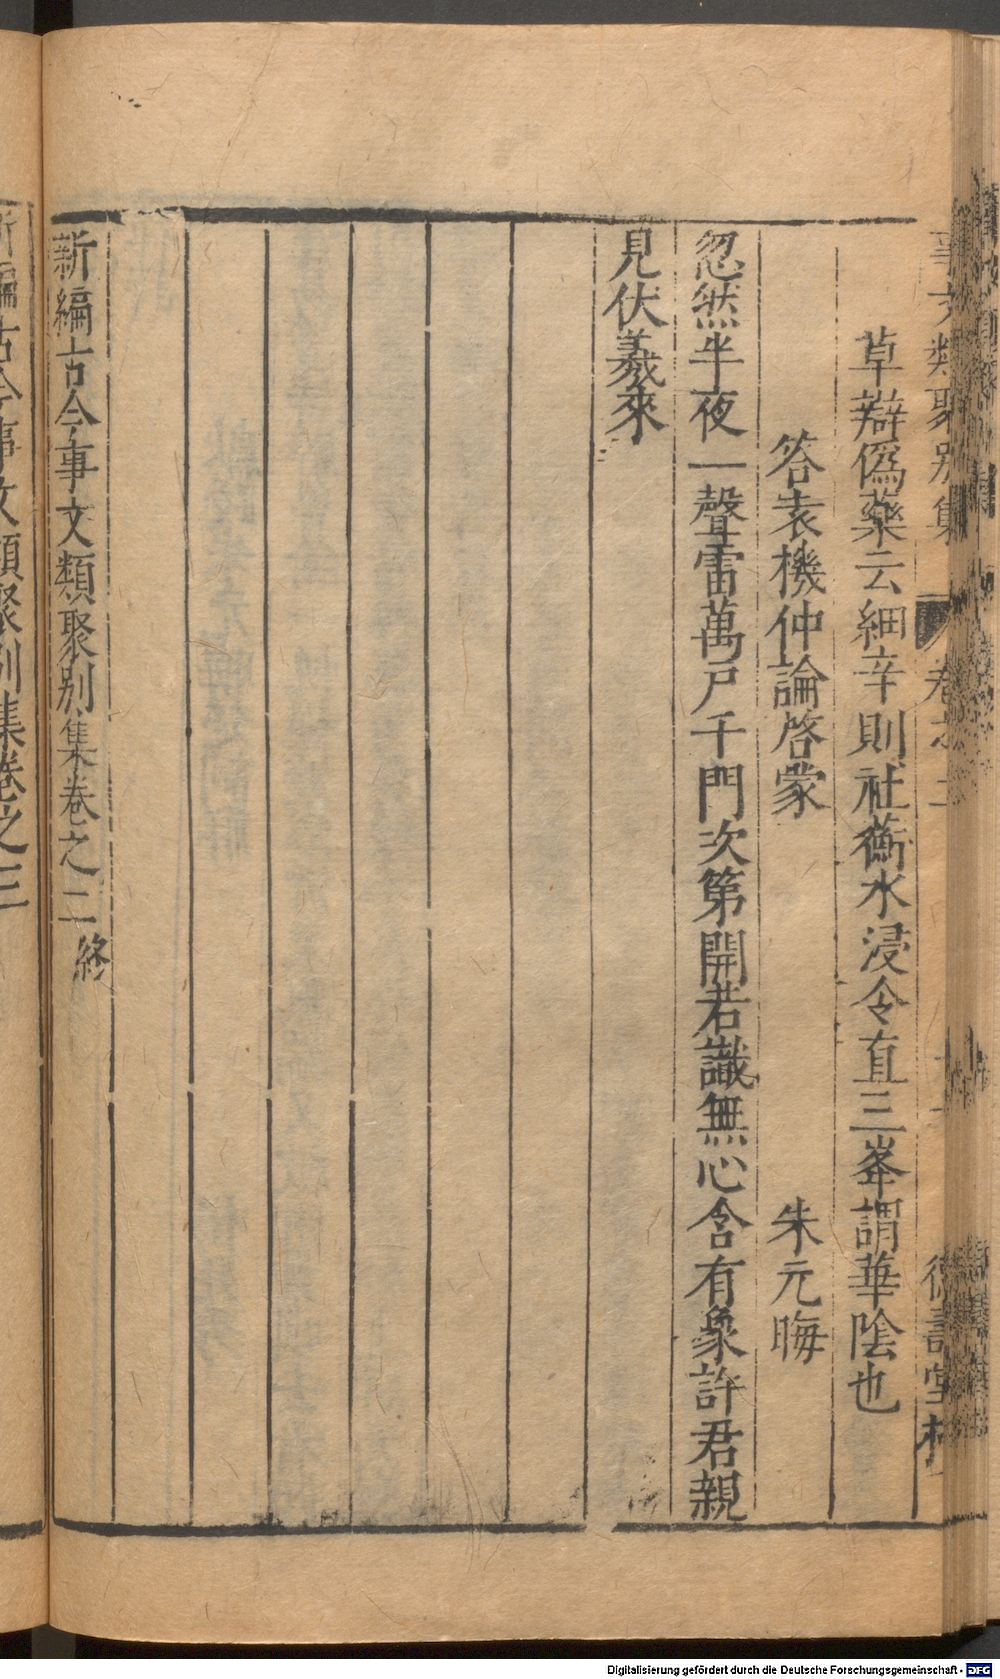 事文類聚別集 卷之二 德壽堂梓
草辯偽藥云細辛則社蘅水浸令直三峯謂華陰也
答袁機仲論啓蒙 朱元晦
忽然半夜一聲雷萬戶千門次第開若識無心含有象許君親
見伏羲來
新編古今事文類聚別集卷之二終
新編古今事文類聚別集卷之三
Digitalisierung gefördert durch die Deutsche Forschungsgemeinschaft - DFG